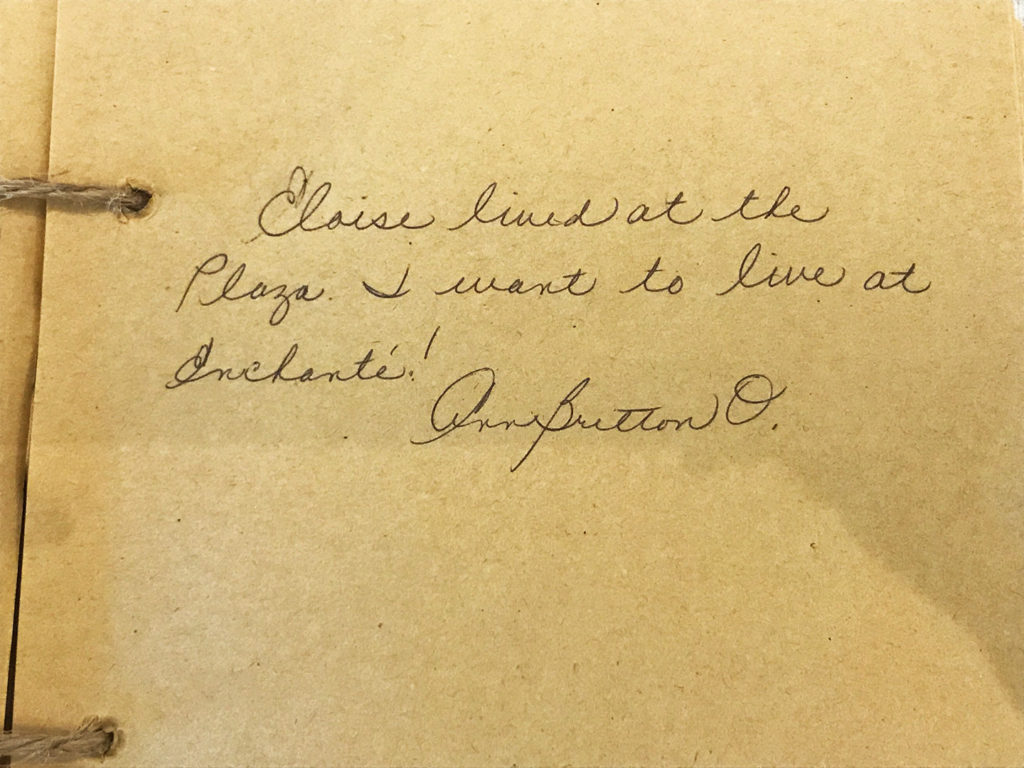 Eloise lived at the
Plaza. I want to live at
Enchanté!
Ann Britton O.